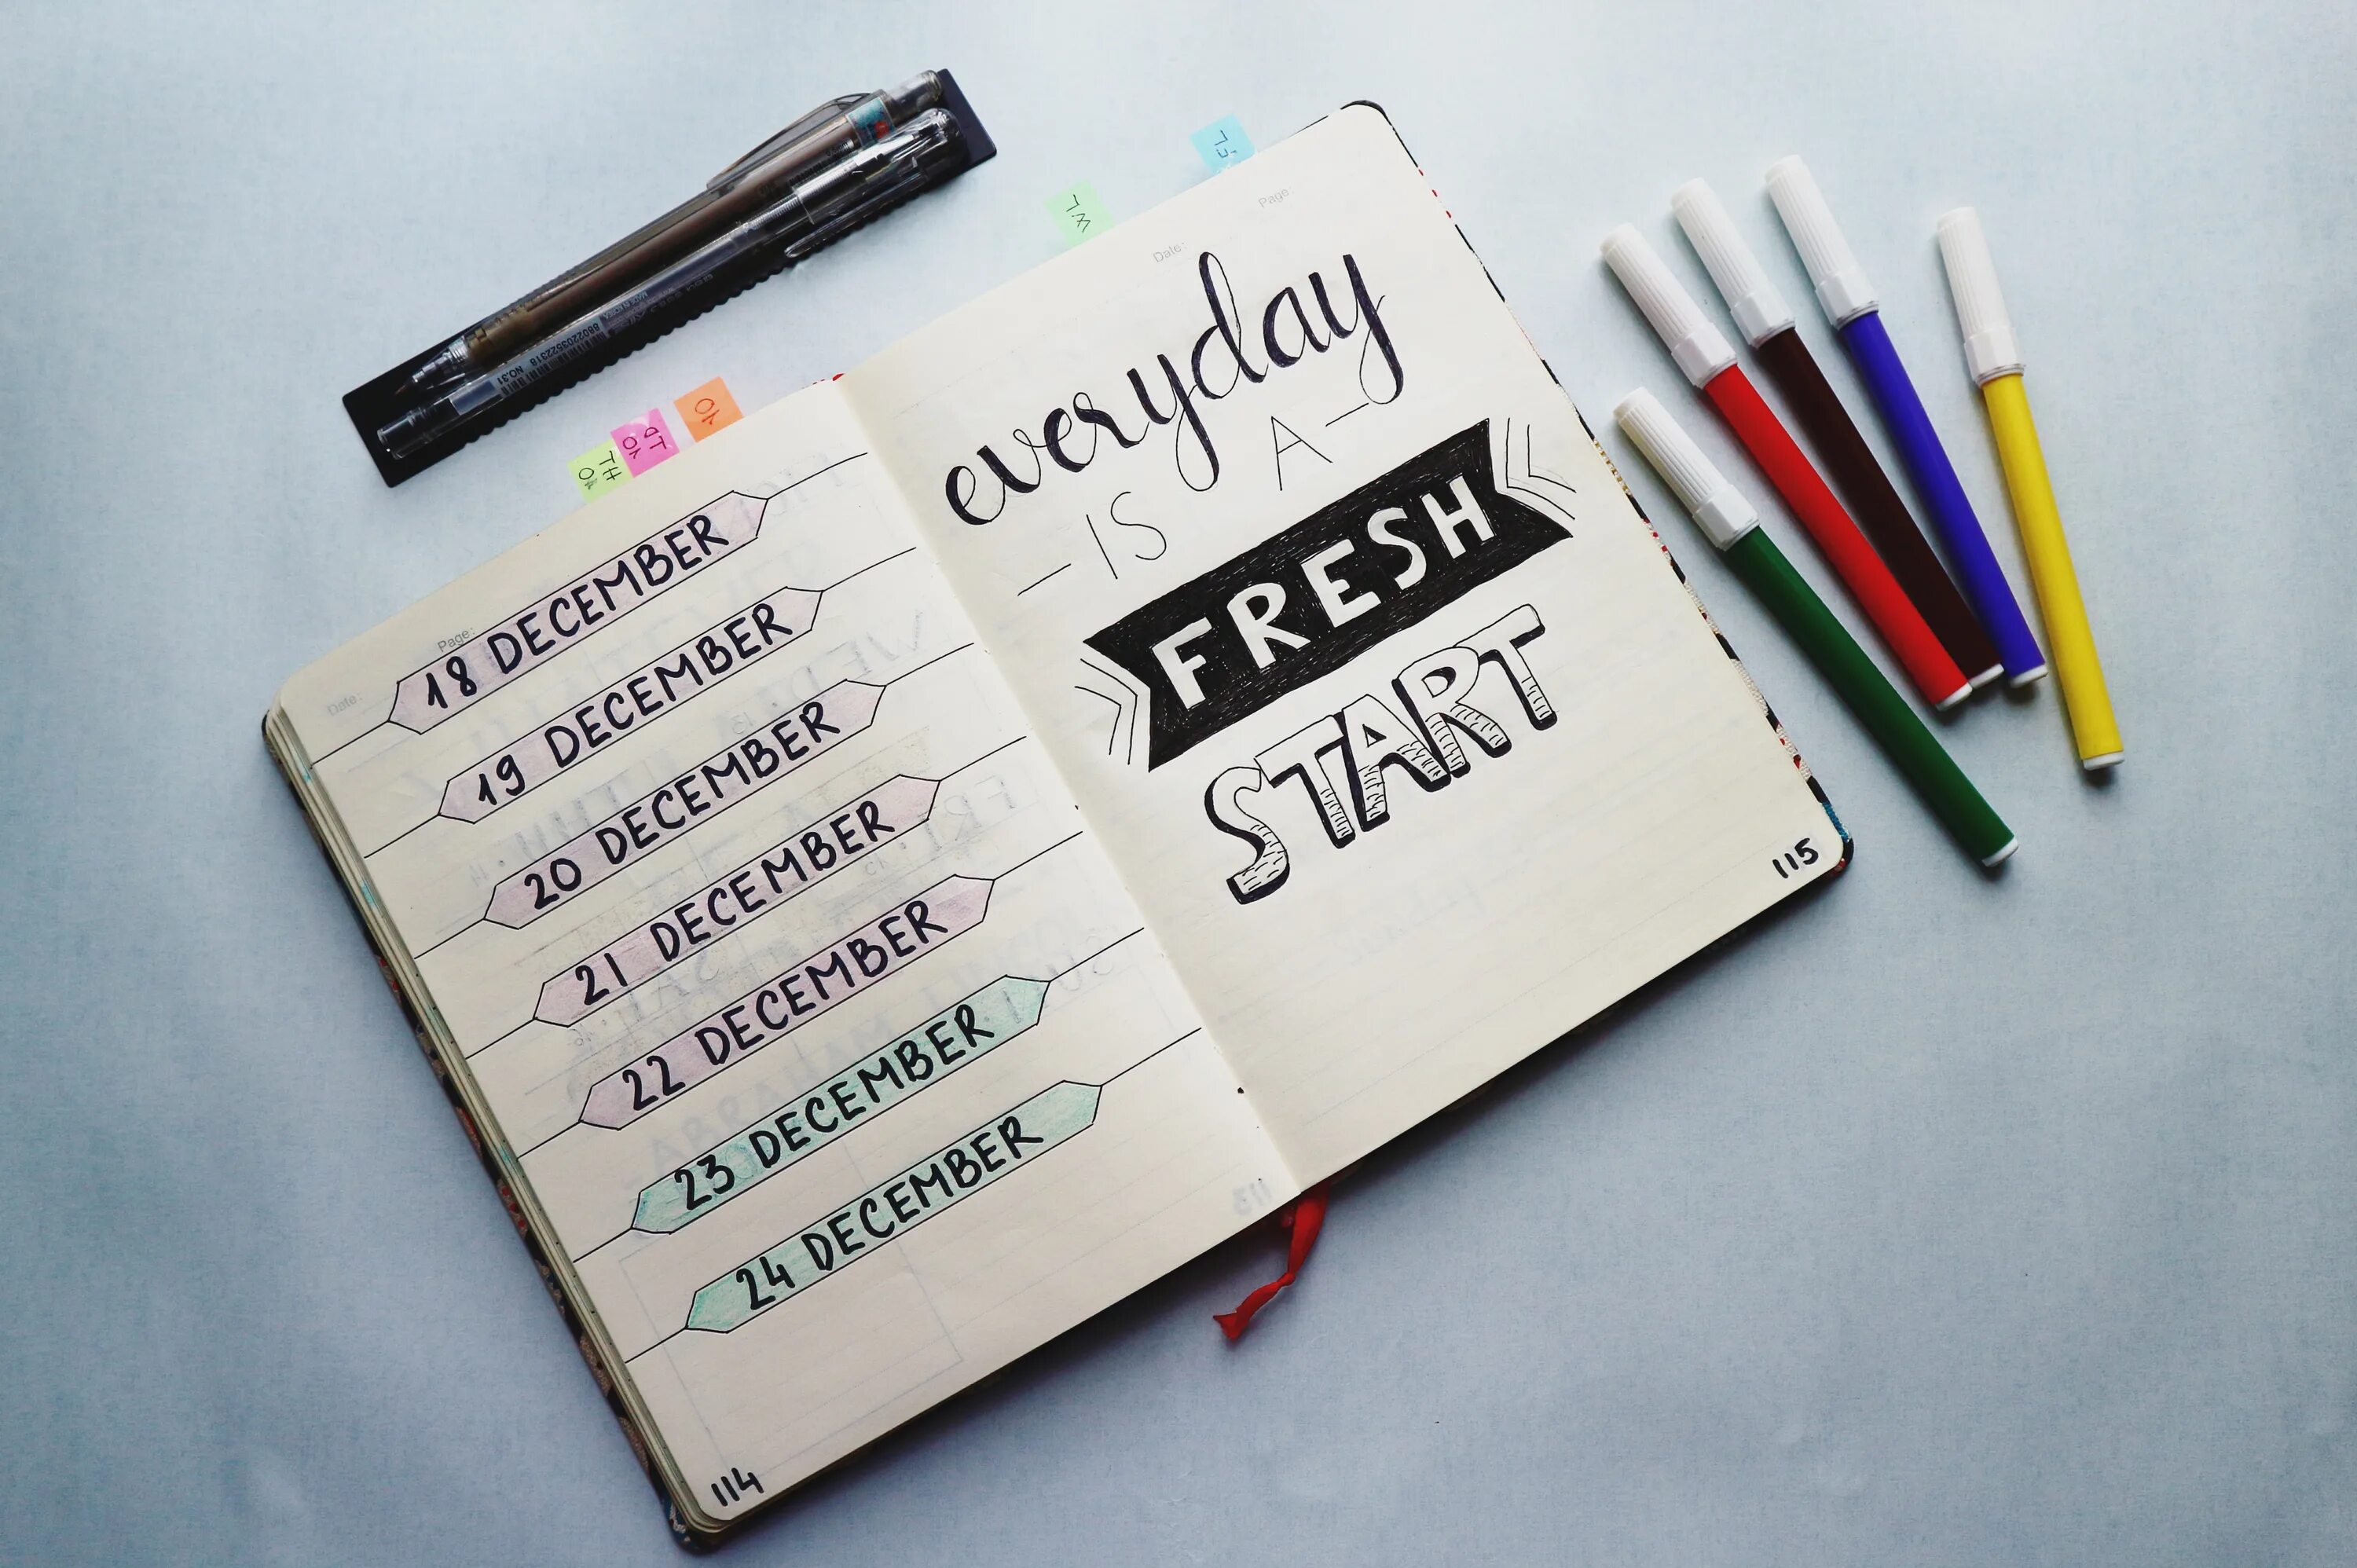 Page:
Date:
18 DECEMBER
19 DECEMBER
20 DECEMBER
21 DECEMBER
22 DECEMBER
23 DECEMBER
24 DECEMBER
114
Date:
Page:
everyday
IS A
FRESH
START
115
NO.31